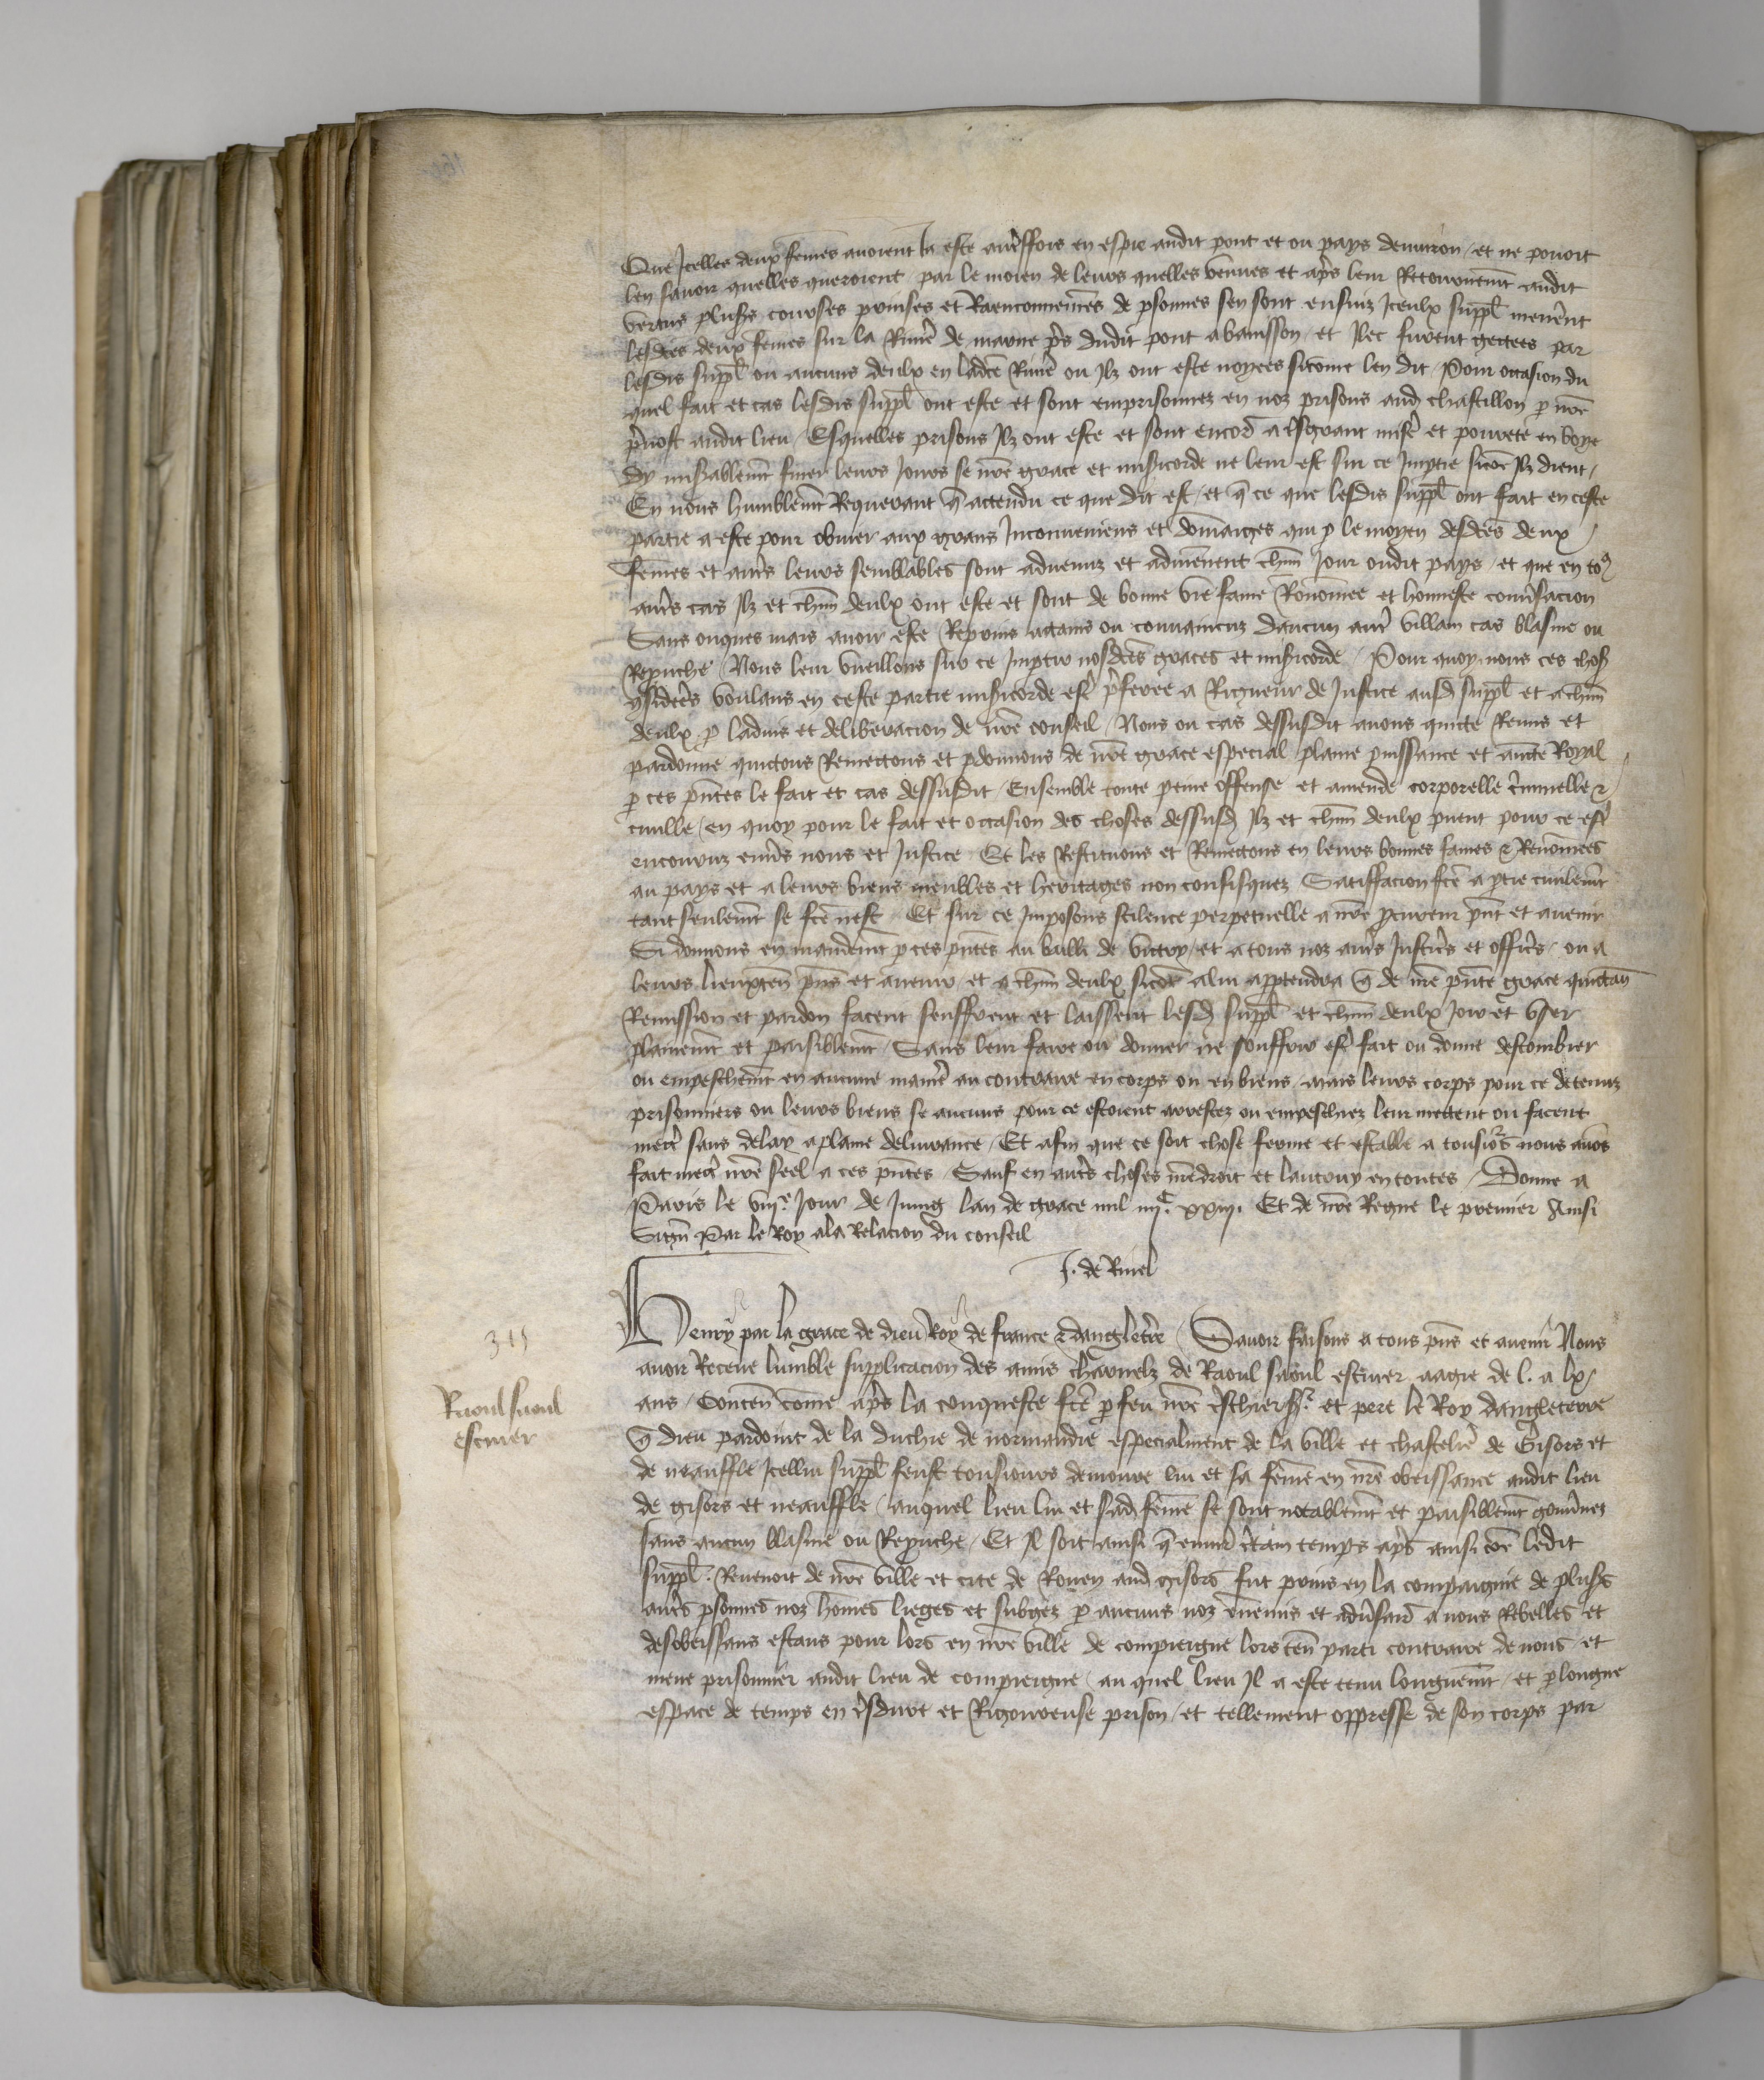 Que Icelles deux femes avoient Ja este autffois en espie audit pont et ou pays denuiron / et ne povoit
len savoir quelles queroient par le moien de leurs quelles venues et aps leur Retournemt audit
vertus plus's courses prinses et Raenconnemens de psonnes sen sont ensuiz Iceulx suppl menerent
lesdces deux femes sur la Riuie de marne pres dudit pont abauisson / et Ilec furent gectees par
lesdis suppl ou aucuns deulx en ladce Riuie ou Ilz ont este noyees sicome len dit / Pour occasion du
quel fait et cas lesdis suppl ont este et sont emprisonnez en noz prisons aud chastillon p nre
prevost audit lieu / Esquelles prisons Ilz ont este et sont encore a tsgrant misere et povrete en voye
dy misablemt finer leurs Jours se nre grace et misicorde ne leur est sur ce Imptie sicoe Ilz dient /
En nous humblemt Requerant q actendu ce que dit est / et q ce que lesdis suppl ont fait en ceste
partie a este pour obvier aux grans Inconveniens et domaiges qui p le moyen desdces deux
femes et autres leurs semblables sont advenuz et adviennent chun Jour oudit pays / et que en to9
autres cas Ilz et chun deulx ont este et sont de bonne vie fame Renomee et honneste convsacion
Sans onques mais avoir este Reprins actains ou convaincuz daucun autre villain cas blasme ou
Reprouche / Nous leur vueillons sur ce Imptir nosdces graces et misicorde / Pour quoy nous ces choses
considerees voulans en ceste partie misicorde estre preferee a Rigueur de Justice ausd suppl et a chun
deulx p ladvis et deliberacion de nre conseil / Nous ou cas dessusdit avons quicte Remis et
pardonne quictons Remectons et pdonnons de nre grace especial plaine puissance et aucte Royal
p ces pntes le fait et cas dessusdit / Ensemble toute peine offense et amende corporelle criminelle &
civille / en quoy pour le fait et occasion des choses dessusd Ilz et chun deulx puent pour ce estre
encouruz envers nous et Justice Et les Restituons et Remectons en leurs bonnes fames & Renomees
au pays et a leurs biens meubles et heritages non confisquez Satiffacion fce a ptie civilemt
tant seulemt se fce nest Et sur ce Imposons scilence perpetuelle a nre procureur pnt et avenir
Si donnons en mandemt p ces pntes au bailli de victry / et a tous noz autres Justiciers et officiers / ou a
leurs lieuxten pns et avenir et a chun deulx sicoe a lui apptendra q de nre pnte grace quictan
Remission et pardon facent seuffrent et laissent lesd suppl et chun deulx Joir et user
plainemt et paisiblemt / Sans leur faire ou donner ne souffrir estre fait ou donne destourbier
ou empeschemt en aucune maniere au contraire en corps ou en biens / mais leurs corps pour ce detenuz
prisonniers ou leurs biens se aucuns pour ce estoient arrestez ou empeschez leur mettent ou facent
mectre sans delay a plaine delivrance / Et afin que ce soit chose ferme et estable a tousiours nous avons
fait mectre nre seel a ces pntes / Sauf en autres choses nre droit et lautruy en toutes / Donne a
Paris le viije Jour de Juing lan de grace mil iiijc xxiij. Et de nre Regne le premier Ainsi
Signe Par le Roy a la Relacion du conseil
J. de Rinel
Henry par la grace de dieu Roy de france & dangleterre / Savoir faisons a tous pns et avenir Nous
avoir Receue lumble supplicacion des amis charnelz de Raoul saoul escuier aagie de l. a lx
ans / Conten come apres la conqueste fce p feu nre tschier sr et pere le Roy dangleterre
q dieu pardoint de la duchie de normandie especialment de la ville et chastelie de Gisors et
de neauffle Icellui suppl feust tousiours demoure lui et sa feme en nre obeissance audit lieu
de gisors et neauffle / auquel lieu lui et sad feme se sont notablemt et paisiblemt gouvnez
sans aucun blasme ou Reprouche / Et Il soit ainsi q environ certain temps apres ainsi coe ledit
suppl. Revenoit de nre ville et cite de Rouen aud gisors fut prins en la compaignie de plus's
autres psonnes noz homes lieges et subgez p aucuns noz ennemis et advsaires a nous Rebelles et
desobeissans estans pour lors en nre ville de compieigne lors ten parti contraire de nous et
mene prisonnier audit lieu de compieigne / au quel lieu Il a este tenu longuemt / et p longue
espace de temps en tsdure et Rigoureuse prison / et tellement oppresse de son corps par
345
Raoul saoul
escuier